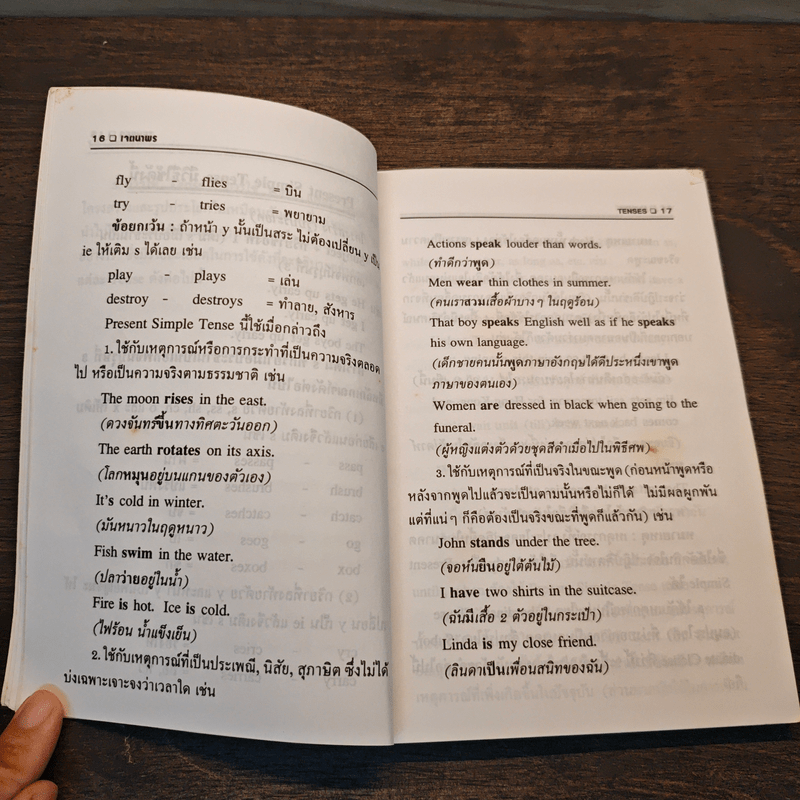 16 ❏ เจตนาพร
fly - flies = บิน
try - tries = พยายาม
ข้อยกเว้น : ถ้าหน้า y นั้นเป็นสระ ไม่ต้องเปลี่ยน y เป็น
ie ให้เติม s ได้เลย เช่น
play - plays = เล่น
destroy - destroys = ทำลาย, สังหาร
Present Simple Tense นี้ใช้เมื่อกล่าวถึง
1. ใช้กับเหตุการณ์หรือการกระทำที่เป็นความจริงตลอด
ไป หรือเป็นความจริงตามธรรมชาติ เช่น
The moon rises in the east.
(ดวงจันทร์ขึ้นทางทิศตะวันออก)
The earth rotates on its axis.
(โลกหมุนอยู่บนแกนของตัวเอง)
It's cold in winter.
(มันหนาวในฤดูหนาว)
Fish swim in the water.
(ปลาว่ายอยู่ในน้ำ)
Fire is hot. Ice is cold.
(ไฟร้อน น้ำแข็งเย็น)
2. ใช้กับเหตุการณ์ที่เป็นประเพณี, นิสัย, สุภาษิต ซึ่งไม่ได้
บ่งเฉพาะเจาะจงว่าเวลาใด เช่น
TENSES ❏ 17
Actions speak louder than words.
(ทำดีกว่าพูด)
Men wear thin clothes in summer.
(คนเราสวมเสื้อผ้าบางๆ ในฤดูร้อน)
That boy speaks English well as if he speaks
his own language.
(เด็กชายคนนั้นพูดภาษาอังกฤษได้ดีประหนึ่งเขาพูด
ภาษาของตนเอง)
Women are dressed in black when going to the
funeral.
(ผู้หญิงแต่งตัวด้วยชุดสีดำเมื่อไปในพิธีศพ)
3. ใช้กับเหตุการณ์ที่เป็นจริงในขณะพูด (ก่อนหน้าพูดหรือ
หลังจากพูดไปแล้วจะเป็นตามนั้นหรือไม่ก็ได้ ไม่มีผลผูกพัน
แต่ที่แน่ๆ ก็คือต้องเป็นจริงขณะที่พูดก็แล้วกัน) เช่น
John stands under the tree.
(จอห์นยืนอยู่ใต้ต้นไม้)
I have two shirts in the suitcase.
(ฉันมีเสื้อ 2 ตัวอยู่ในกระเป๋า)
Linda is my close friend.
(ลินดาเป็นเพื่อนสนิทของฉัน)